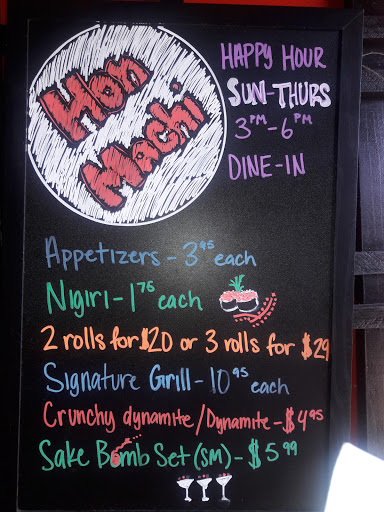 Hon
Machi
HAPPY HOUR
SUN-THURS
3PM-6PM
DINE-IN
Appetizers - 3.95 each
Nigiri - 1.75 each
2 rolls for $20 or 3 rolls for $29
Signature Grill - 10.95 each
Crunchy dynamite/Dynamite - $4.95
Sake Bomb Set (SM) - $5.99